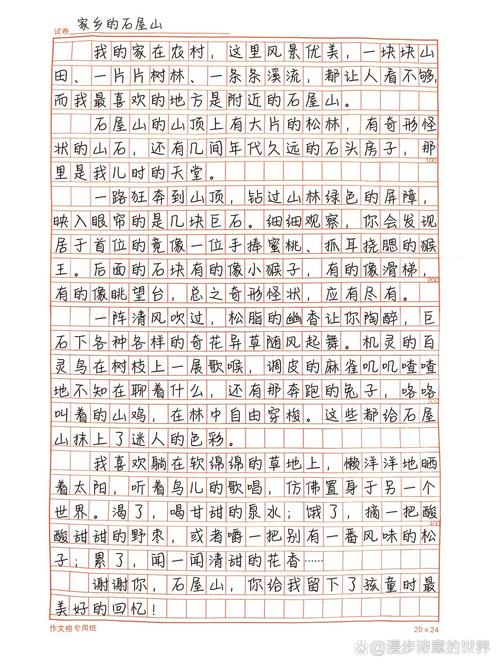 家乡的石屋山
试卷
我的家在农村，这里风景优美，一块块山
田、一片片树林、一条条溪流，都让人看不够，
而我最喜欢的地方是附近的石屋山。
石屋山的山顶上有大片的松林，有奇形怪
状的山石，还有几间年代久远的石头房子，那
里是我儿时的天堂。
100
一路狂奔到山顶，钻过山林绿色的屏障，
映入眼帘的是几块巨石。细细观察，你会发现
居于首位的竟像一位手捧蜜桃、抓耳挠腮的猴
王。后面的石块有的像小猴子，有的像滑梯，
200
有的像眺望台，总之奇形怪状，应有尽有。
一阵清风吹过，松脂的幽香让你陶醉，巨
石下各种各样的奇花异草随风起舞。机灵的百
灵鸟在树枝上一展歌喉，调皮的麻雀叽叽喳喳
地不知在聊着什么，还有那奔跑的兔子，咯咯
叫着的山鸡，在林中自由穿梭。这些都给石屋
山抹上了迷人的色彩。
我喜欢躺在软绵绵的草地上，懒洋洋地晒
着太阳，听着鸟儿的歌唱，仿佛置身于另一个
世界。渴了，喝甘甜的泉水；饿了，摘一把酸
400
酸甜甜的野枣，或者嚼一把别有一番风味的松
子；累了，闻一闻清甜的花香……
谢谢你，石屋山，你给我留下了孩童时最
美好的回忆！
作文格专用纸
20×24
@漫步诗意的世界